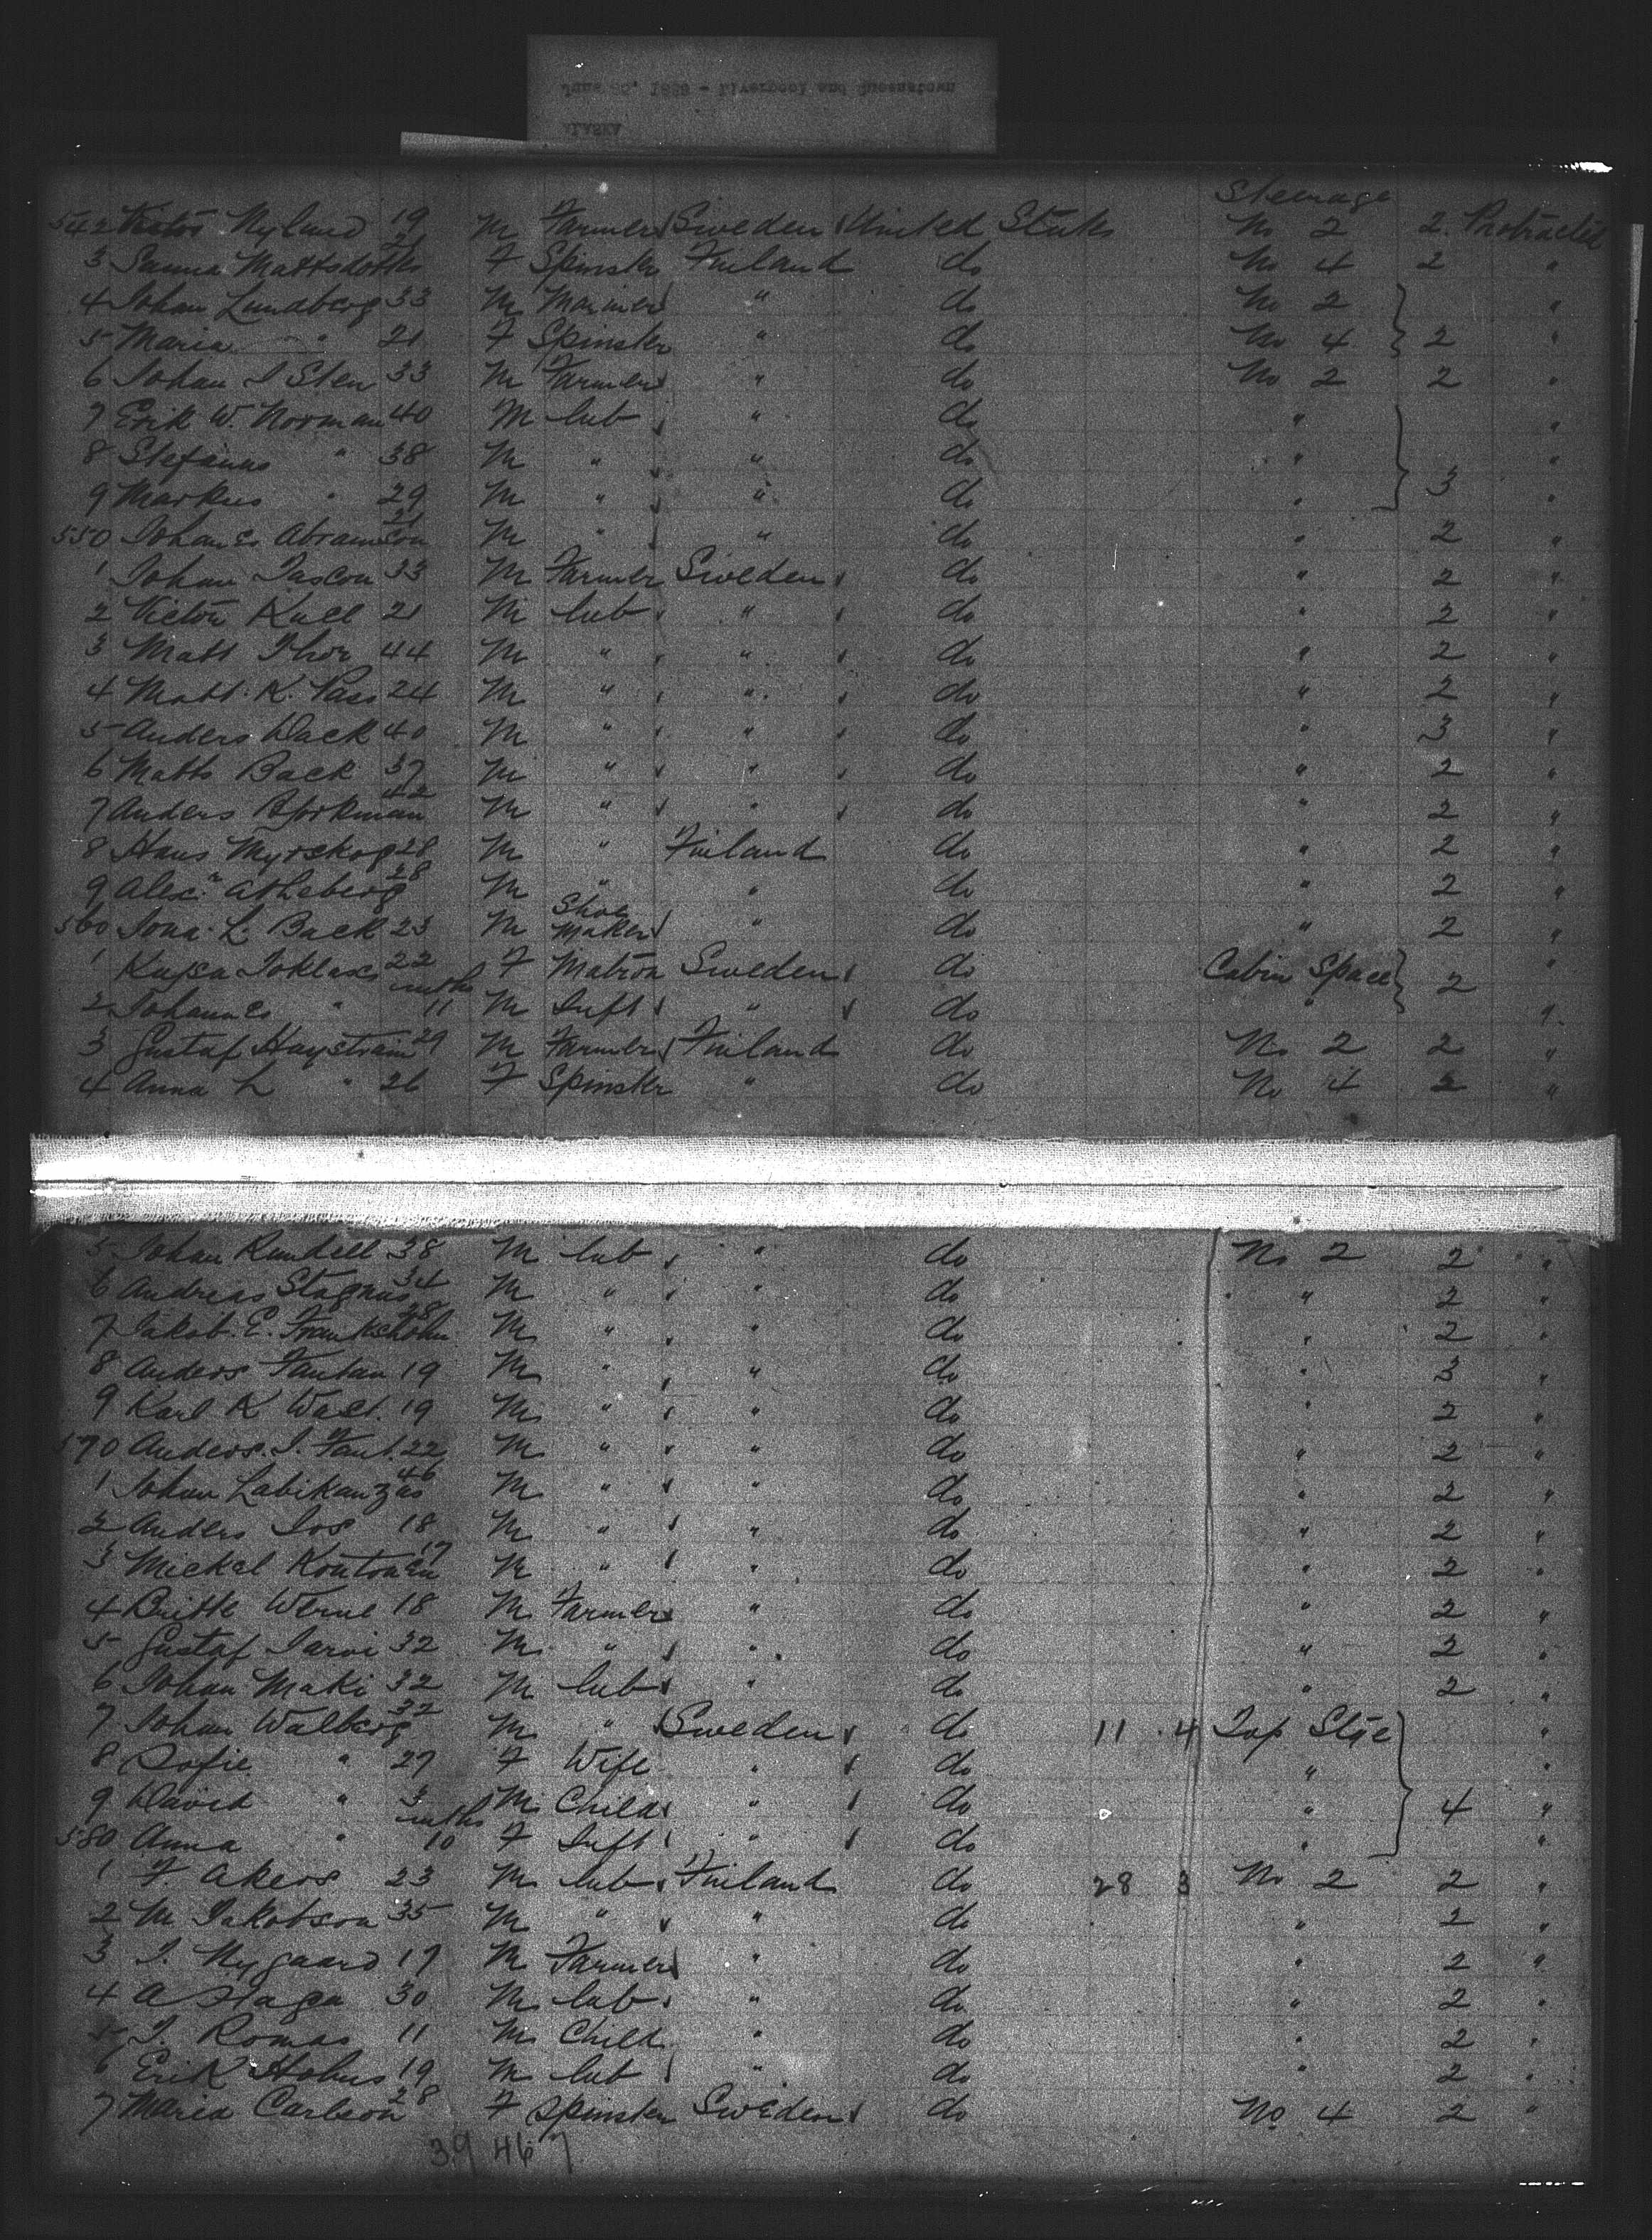 ALASKA
June 25, 1889 - Liverpool and Queenstown
Steerage
542 Victor Nylund 19 M Farmer Sweden United States No 2 2 Protracted
3 Sanna Mattsdotter 21 F Spinster Finland do No 4 2 "
4 Johan Lundberg 33 M Mariner " do No 2 "
5 Maria " 21 F Spinster " do No 4 2 "
6 Johan J Sten 33 M Farmer " do No 2 2 "
7 Erik W. Norman 40 M Lab " do " "
8 Stefanus " 38 M " " do " "
9 Markus " 29 M " " do " 3 "
550 Johan Es Abramson 21 M " " do " 2 "
1 Johan 33 M Farmer Sweden do " 2 "
2 Victor Kull 21 M Lab " do " 2 "
3 Matt Thor 44 M " " do " 2 "
4 Matt. K. Pass 24 M " " do " 2 "
5 Anders Back 40 M " " do " 3 "
6 Matts Back 37 M " " do " 2 "
7 Anders 42 M " " do " 2 "
8 Hans Myrskog 28 M " Finland do " 2 "
9 Alex. 28 M " " do " 2 "
560 Jona. L. Back 23 M Shoe Maker " do " 2 "
1 Kajsa 22 F Matron Sweden do Cabin Space 2 "
2 Johannes " mths 11 M Inft " do " "
3 Gustaf 29 M Farmer Finland do No 2 2 "
4 Anna L " 26 F Spinster " do No 4 2 "
5 Johan Rundell 38 M Lab " do No 2 2 "
6 Andreas Stagnus 34 M " " do " 2 "
7 Jakob. E. 28 M " " do " 2 "
8 Anders Fantan 19 M " " do " 3 "
9 Karl K Wast. 19 M " " do " 2 "
570 Anders. J. Fant. 22 M " " do " 2 "
1 Johan 46 M " " do " 2 "
2 Anders 18 M " " do " 2 "
3 Mickel 17 M " " do " 2 "
4 Britte Werne 18 M Farmer " do " 2 "
5 Gustaf Jarvi 32 M " " do " 2 "
6 Johan Maki 32 M Lab " do " 2 "
7 Johan Walberg 32 M " Sweden do 11 4 Top "
8 Sofie " 27 F Wife " do " "
9 David " 3 M Child " do " 4 "
580 Anna " mths 10 F Inft " do " "
1 F Akers 23 M Lab Finland do 28 3 No 2 2 "
2 M Jakobson 35 M " " do " 2 "
3 J. Nygaard 17 M Farmer " do " 2 "
4 A 30 M Lab " do " 2 "
5 J. Romas 11 M Child " do " 2 "
6 Erik Holms 19 M Lab " do " 2 "
7 Maria Carlson 28 F Spinster Sweden do No 4 2 "
39 46 7